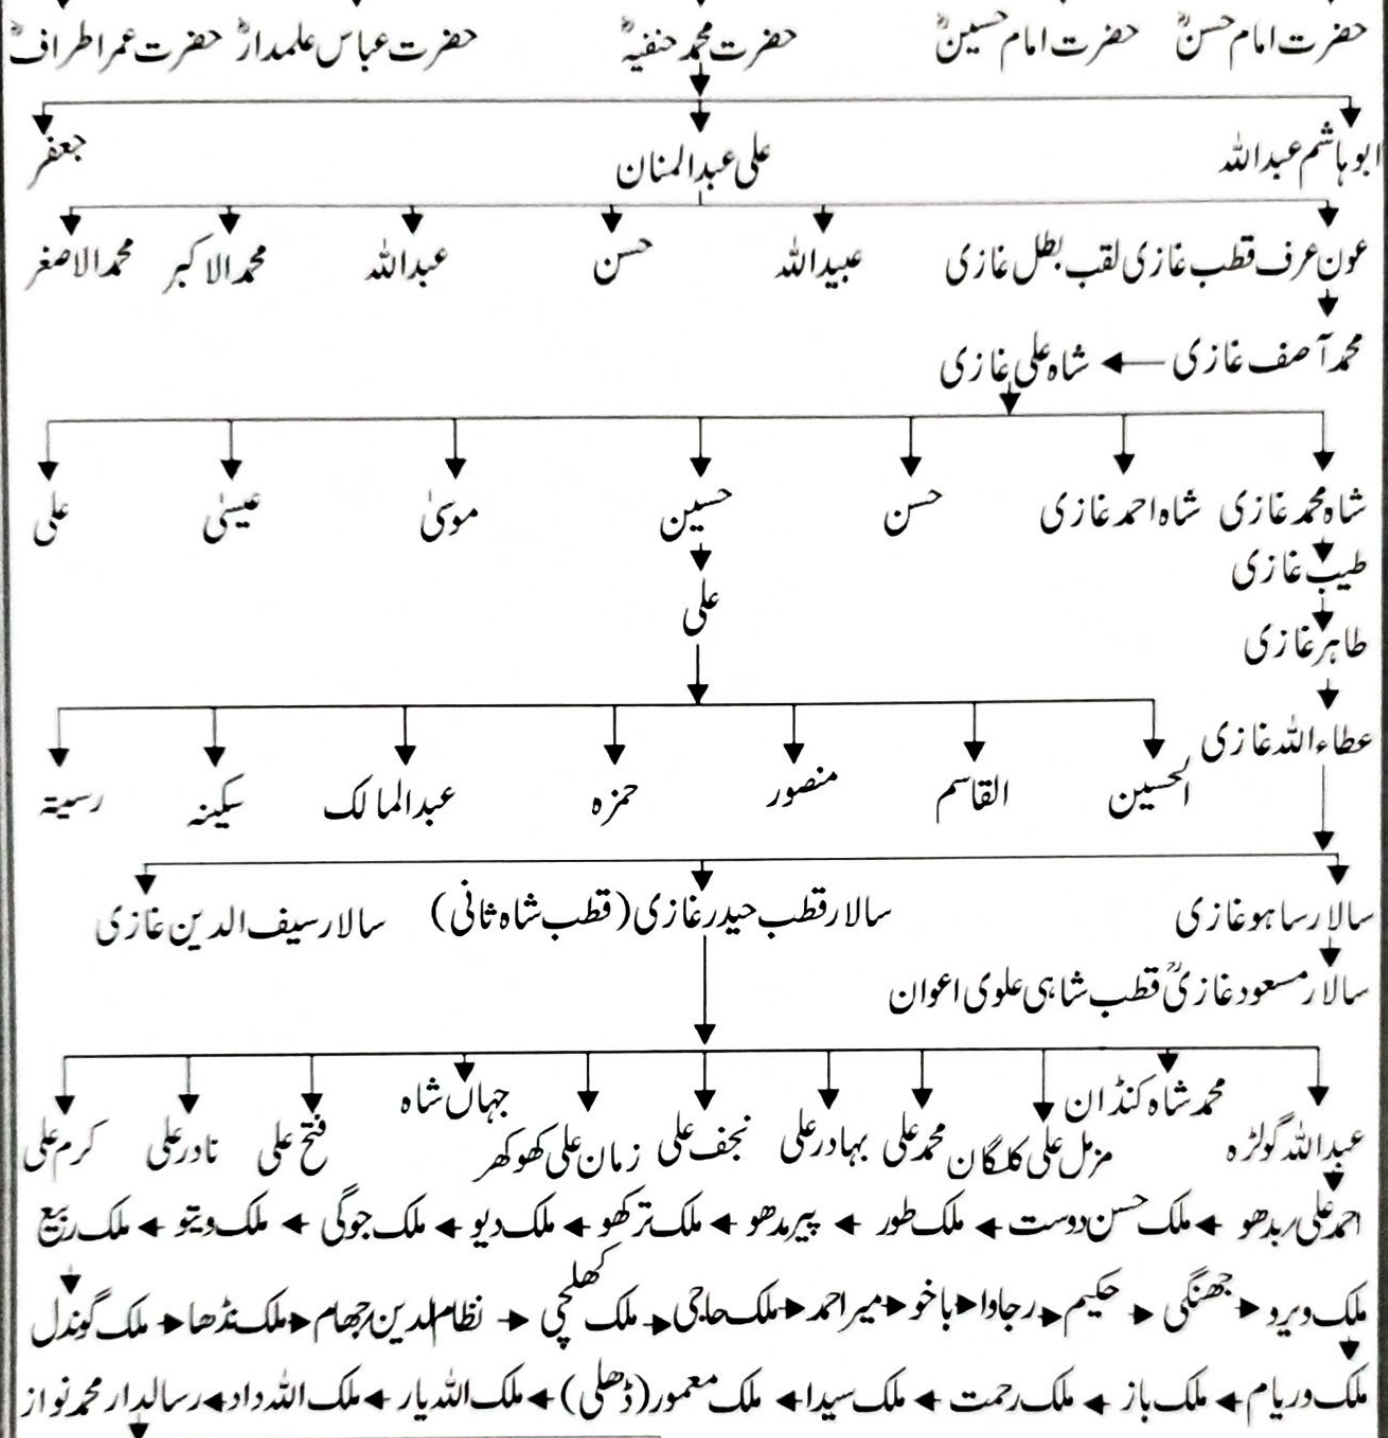 حضرت امام حسنؓ حضرت امام حسینؓ حضرت محمد حنفیہؓ حضرت عباس علمدارؓ حضرت عمر اطرافؓ
ابوہاشم عبداللہ علی عبدالمنان جعفر
عون عرف قطب غازی لقب بطل غازی عبیداللہ حسن عبداللہ محمد الاکبر محمد الاصغر
محمد آصف غازی ← شاہ علی غازی
شاہ محمد غازی شاہ احمد غازی حسن حسین موسیٰ عیسیٰ علی
طیب غازی
علی
طاہر غازی
عطاء اللہ غازی
الحسین القاسم منصور حمزہ عبدالمالک سکینہ رسیتہ
سالار ساہو غازی سالار قطب حیدر غازی (قطب شاہ ثانی) سالار سیف الدین غازی
سالار مسعود غازیؒ قطب شاہی علوی اعوان
عبداللہ گولڑہ محمد شاہ کنڈان مزمل علی کلگان محمد علی بہادر علی نجف علی زمان علی کھوکھر جہاں شاہ فتح علی نادر علی کرم علی
احمد علی ربدھو ← ملک حسن دوست ← ملک طور ← پیر مدھو ← ملک ترکھو ← ملک دیو ← ملک جوگی ← ملک ویتو ← ملک ربیع
ملک ویرو → جھنگی → حکیم → رجاوا → باخو → میر احمد → ملک حاجی → ملک کھلچی → نظام الدین رجھام → ملک نڈھا → ملک گوندل
ملک وریام ← ملک باز ← ملک رحمت ← ملک سیدا ← ملک معمور (ڈھلی) ← ملک اللہ یار ← ملک اللہ داد ← رسالدار محمد نواز